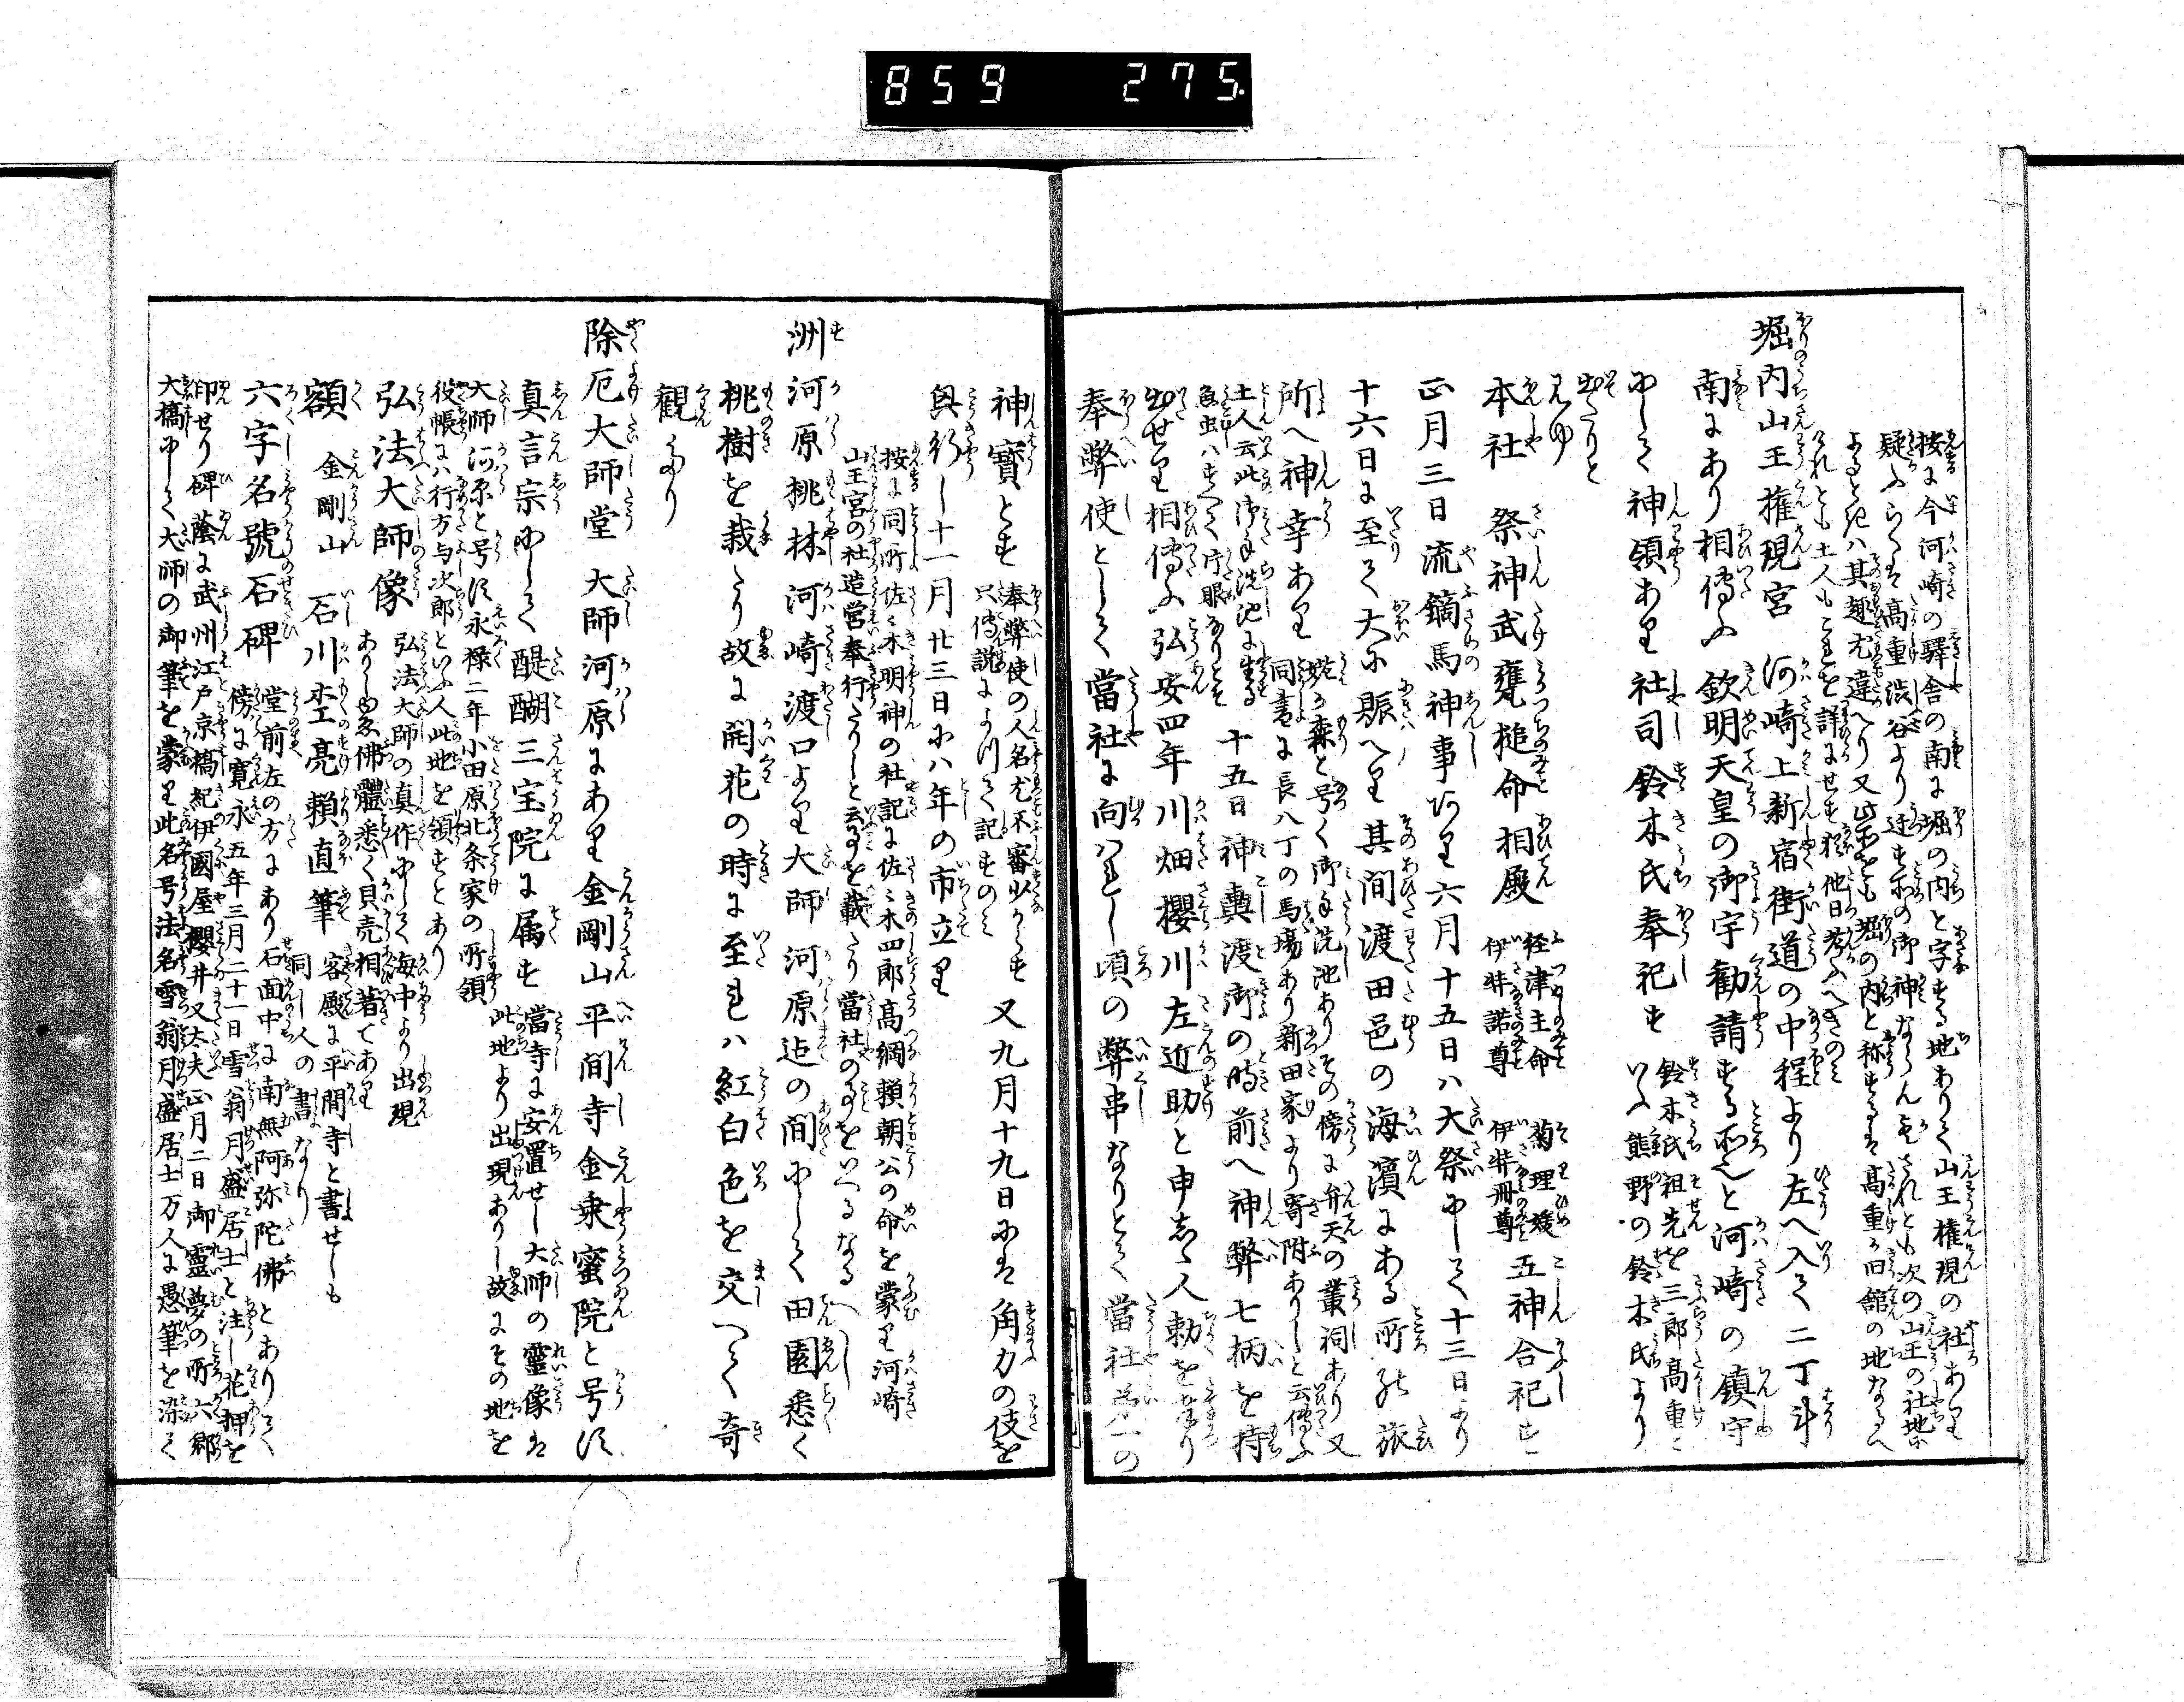 859 275
按に今河崎の驛舎の南に堀の内と字する地ありて山王権現の社あり
疑ふらくは高重渋谷より迁す所の御神ならん されとも次の山王の社地に
よるときは其趣尤違へり又此所をも堀の内と称するは高重か旧館の地なるへ
けれとも土人もこれを詳にせす猶他日考ふへきのみ
堀内山王権現宮 河崎上新宿街道の中程より左へ入て二丁斗
南にあり相傳ふ 欽明天皇の御宇勧請する所と河崎の鎮守
にして神領あり社司鈴木氏奉祀す 鈴木氏祖先を三郎高重と
いふ熊野の鈴木氏より
出たりと
いふ
本社 祭神武甕槌命相殿 経津主命 菊理媛
伊弉諾尊 伊弉冊尊 五神合祀す
正月三日流鏑馬神事あり六月十五日ハ大祭にして十三日より
十六日に至て大に賑へり其間渡田邑の海濱にある所の旅
所へ神幸あり 蛇か森と号く御手洗池ありその傍に弁天の叢祠あり又
同書に長八丁の馬場あり新田家より寄附ありしと云傳ふ
土人云此御手洗池に生る
魚虫ハすへて片眼なりとそ 十五日神輿渡御の時前へ神弊七柄を持
出せり相傳ふ弘安四年川畑櫻川左近助と申せし人勅を奉り
奉弊使として當社に向はれし頃の弊串なりとて當社第一の
神寳とす 奉弊使の人名尤不審少からす
只傳説によつて記すのみ 又九月十九日には角力の伎を
興行し十一月廿三日にハ年の市立り
按に同所佐々木明神の社記に佐々木四郎高綱頼朝公の命を蒙り河崎
山王宮の社造営奉行たりしと云事を載たり當社の事をいへるなるへし
洲河原桃林 河崎渡口より大師河原迠の間にして田園悉く
桃樹を栽たり故に開花の時に至れハ紅白色を交へて奇
観なり
除厄大師堂 大師河原にあり金剛山平間寺金乗蜜院と号す
真言宗にして醍醐三宝院に属す 當寺に安置せし大師の靈像は
此地より出現ありし故にその地を
大師河原と号す永禄二年小田原北条家の所領
役帳にハ行方与次郎といふ人此地を領すとあり
弘法大師像 弘法大師の真作にして海中より出現
ありし故佛體悉く貝売相著てあり
額 金剛山 石川杢亮頼直筆 客殿に平間寺と書せしも
同し人の書なり
六字名號石碑 堂前左の方にあり石面中に南無阿弥陀佛とありて
傍に寛永五年三月二十一日雪翁月盛居士と注し花押を
印せり碑蔭に武州江戸京橋紀伊國屋櫻井又太夫正月二日御靈夢の所六郷
大橋にして大師の御筆を蒙り此名号法名雪翁月盛居士万人に愚筆を染て